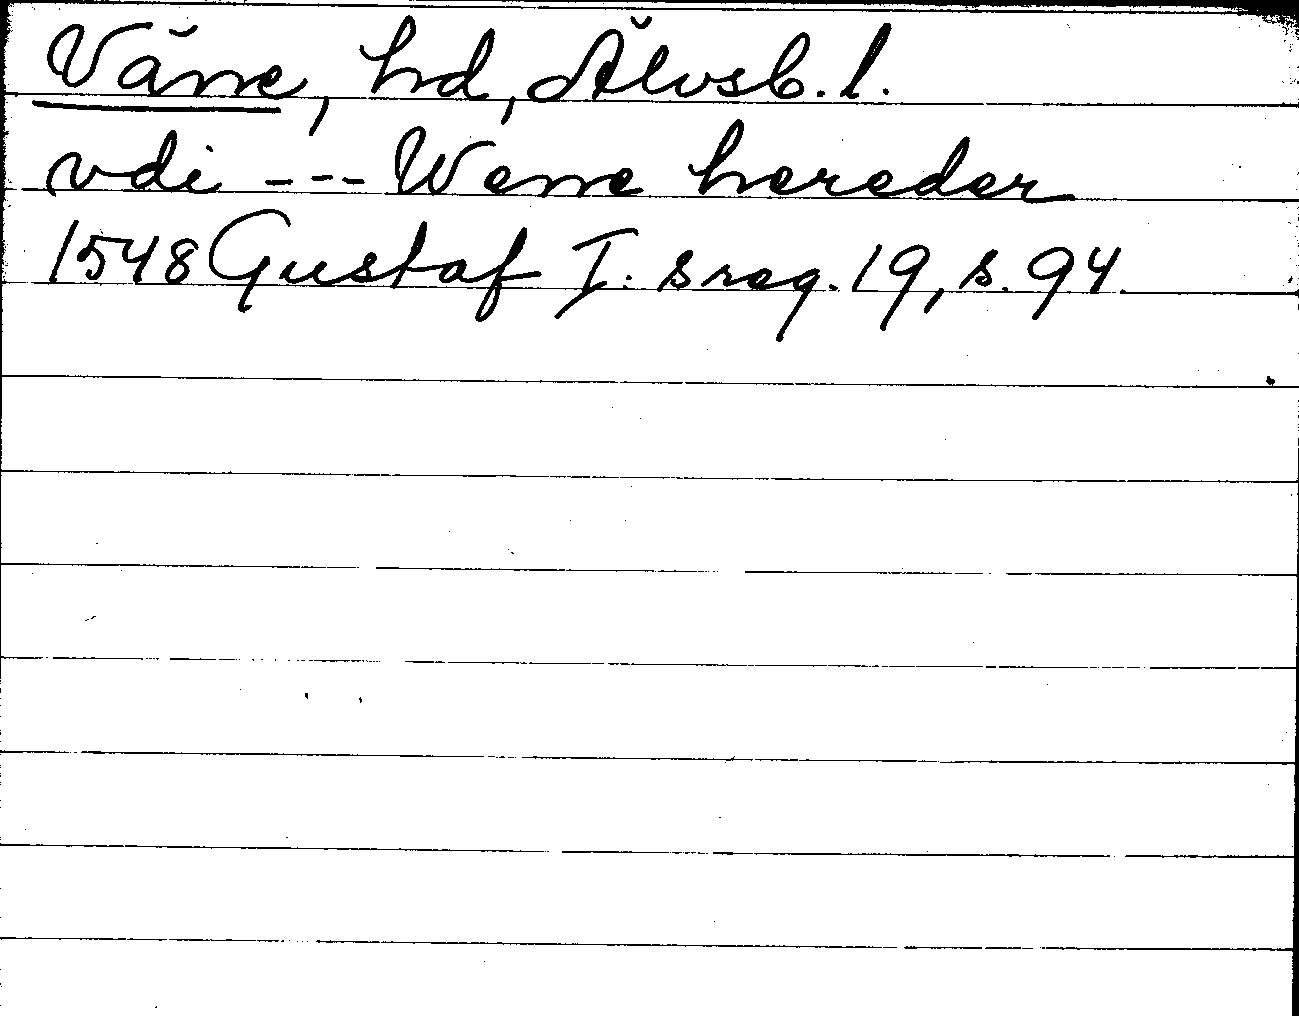 Väne, hd, Älvsb. l.
vdi --- Wenne hereder
1548 Gustaf I:s reg. 19, s. 94.